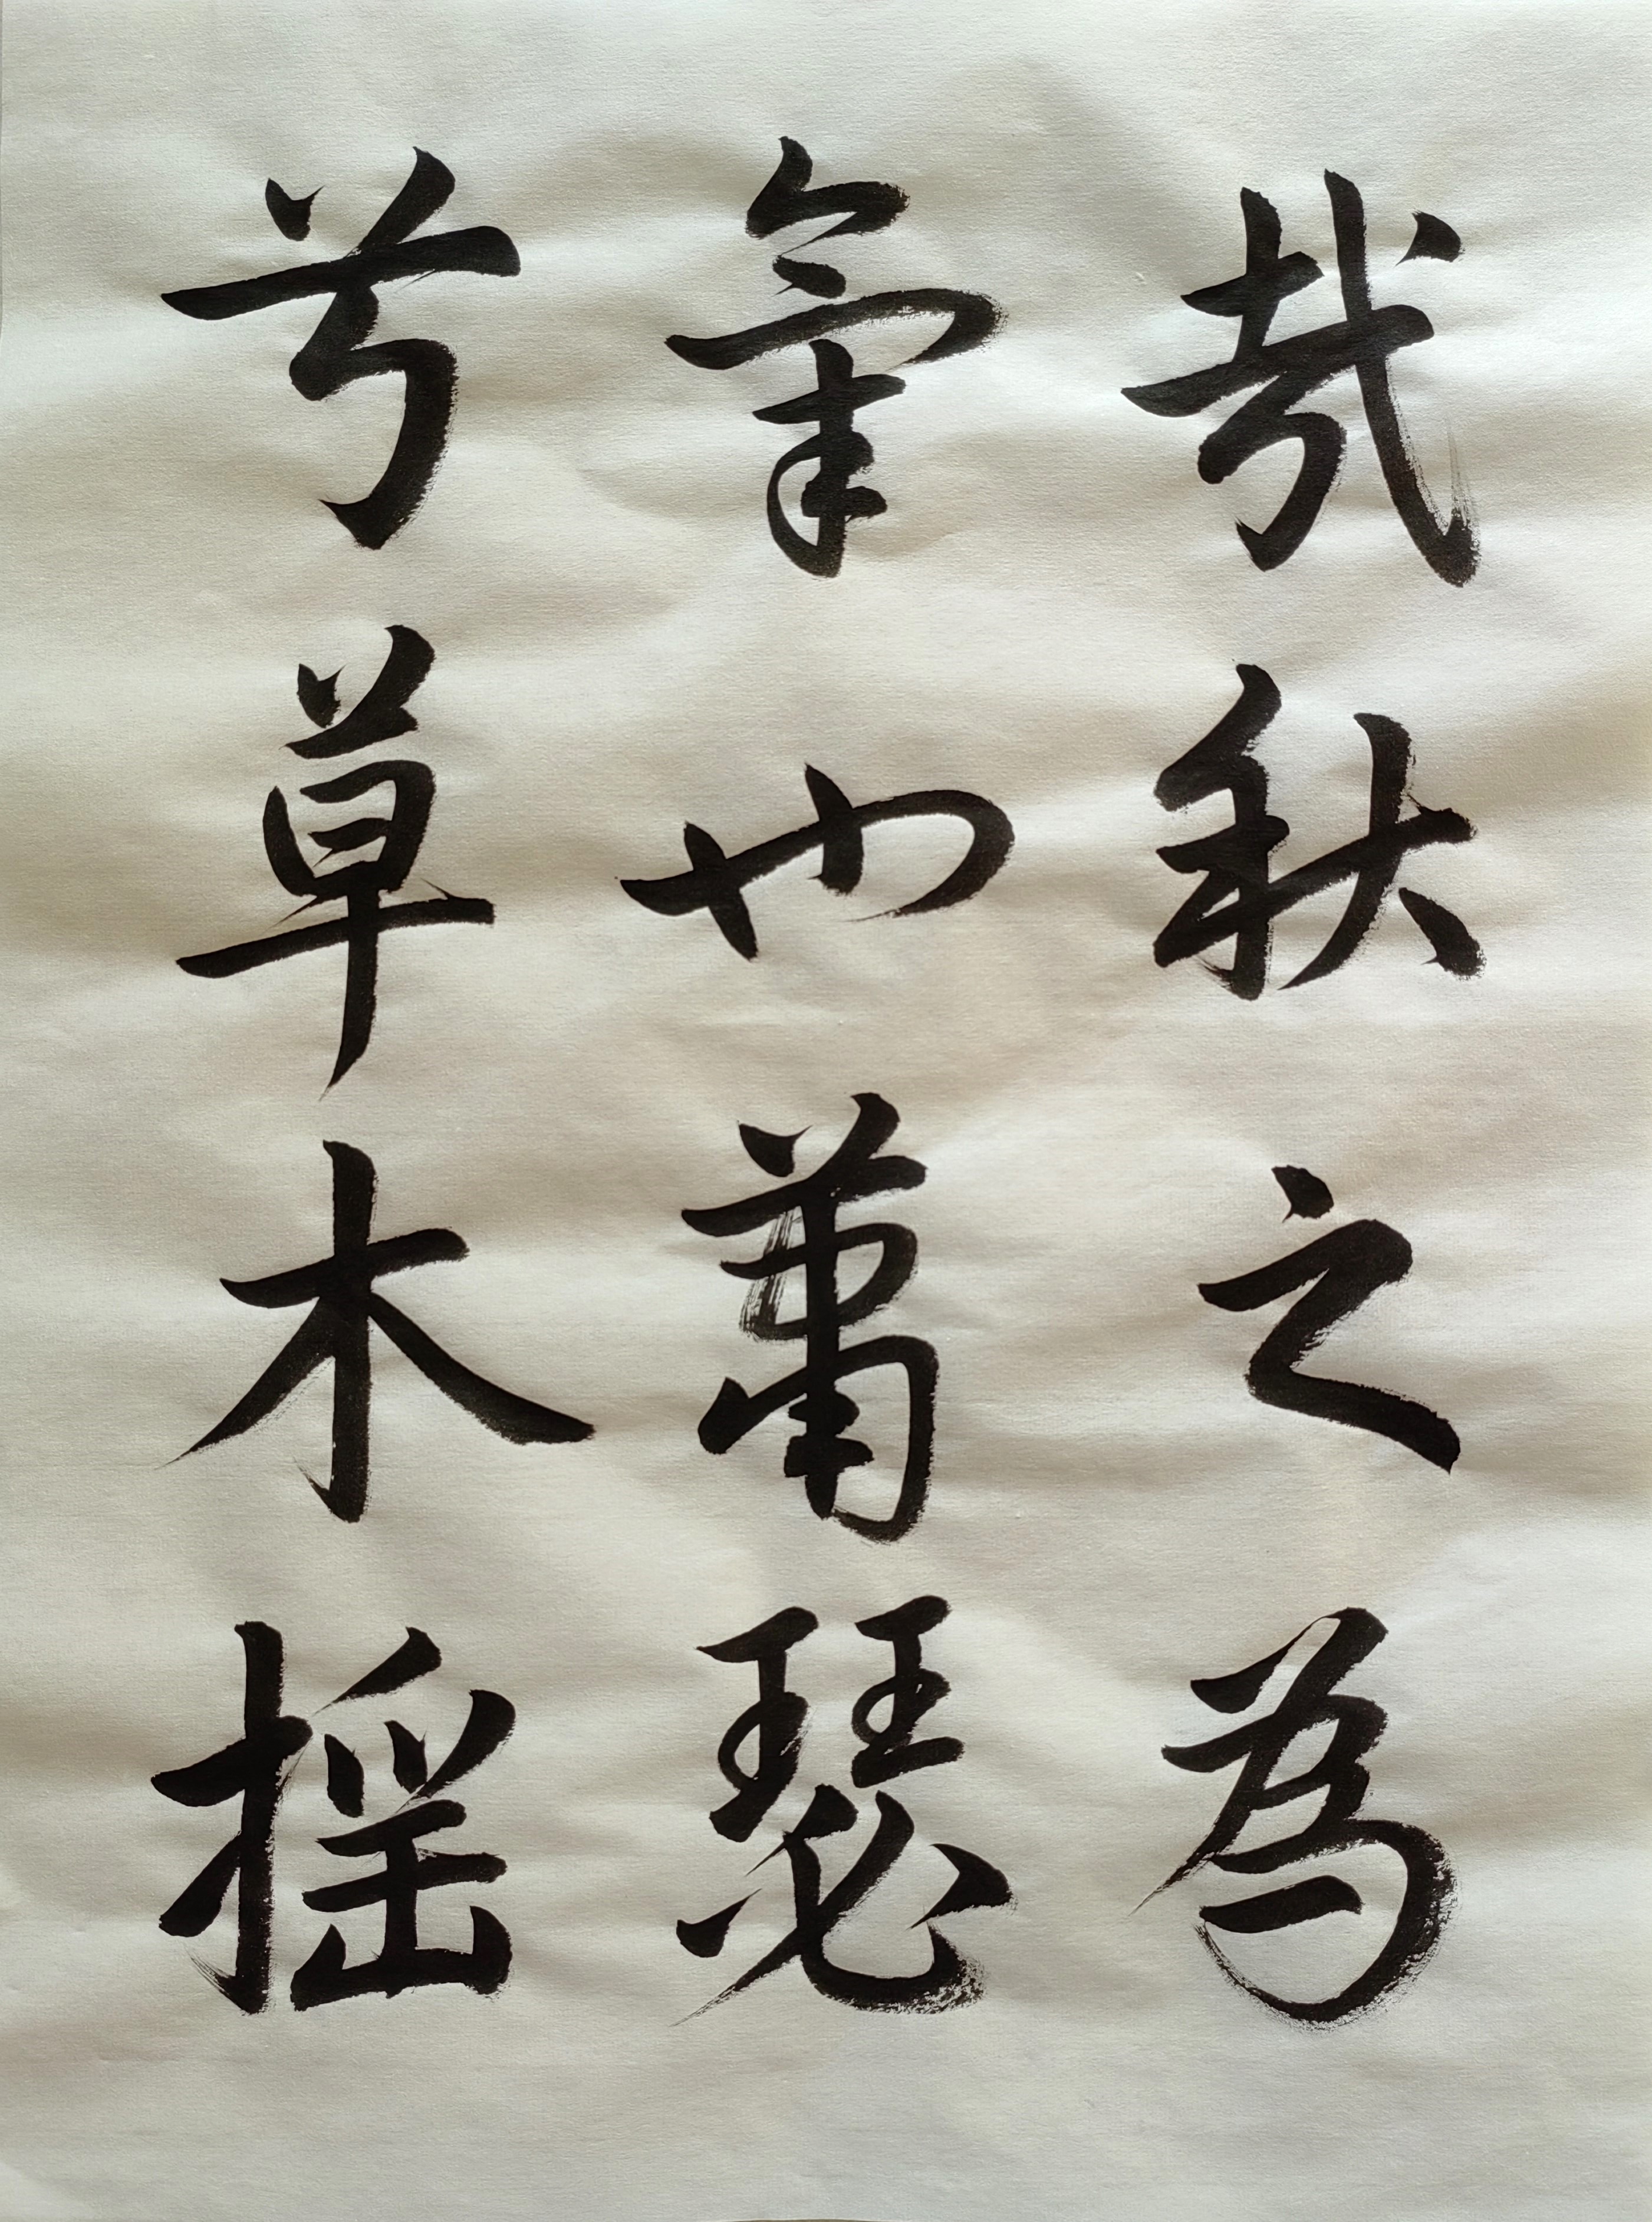 哉秋之為
氣也蕭瑟
兮草木摇